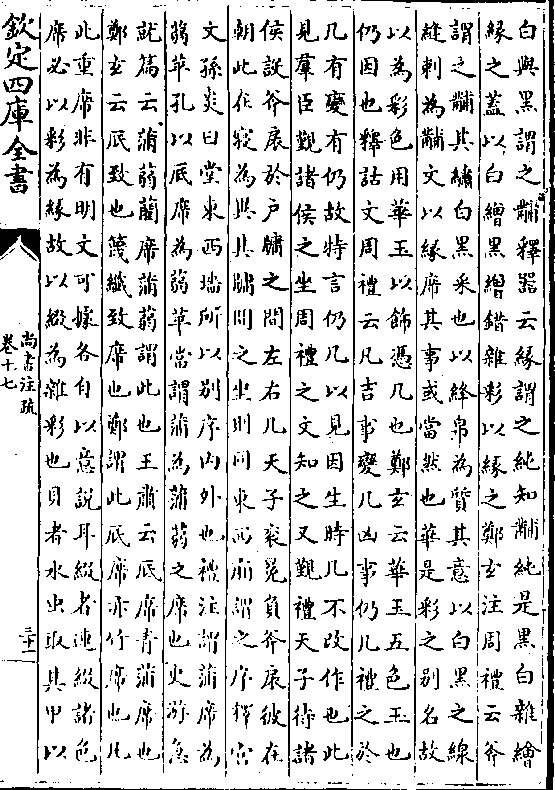 白與黑謂之黼釋器云緣謂之純知黼純是黑白雜繒
緣之蓋以白繒黑繒錯雜彩以緣之鄭玄注周禮云斧
謂之黼其繡白黑采也以絳帛為質其意以白黑之線
縫刺為黼文以緣席其事或當然也華是彩之别名故
以為彩色用華玉以飾憑几也鄭玄云華玉五色玉也
仍因也釋詁文周禮云凡吉事變几凶事仍几禮之於
几有變有仍故特言仍几以見因生時几不改作也此
見羣臣覲諸侯之坐周禮之文知之又覲禮天子待諸
侯設斧扆於户牖之間左右几天子衮冕負斧扆彼在
朝此在寢為異其牖間之坐則同東西廂謂之序釋宫
文孫炎曰堂東西墻所以别序内外也禮注謂蒲席為
蒻苹孔以厎席為蒻苹當謂蒲為蒲蒻之席也史游急
就篇云蒲蒻藺席蒲蒻謂此也王肅云厎席青蒲席也
鄭玄云厎致也篾纖致席也鄭謂此厎席亦竹席也凡
此重席非有明文可據各自以意説耳綴者連綴諸色
席必以彩為緣故以綴為雜彩也貝者水虫取其甲以
欽定四庫全書
尚書注疏
卷十七
三十